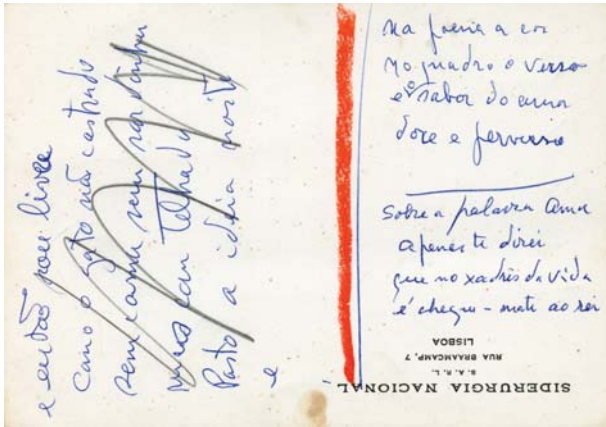 e então sou livre
como o gato não castrado
sem cama sem
mas com telhado
Parto a ideia noite
e
na poesia a cor
no quadro o verso
e o sabor do amor
doce e perverso
sobre a palavra Amor
apenas te direi
que no xadrês da vida
é cheque-mate ao rei
SIDERURGIA NACIONAL
S. A. R. L.
RUA BRAAMCAMP, 7
LISBOA